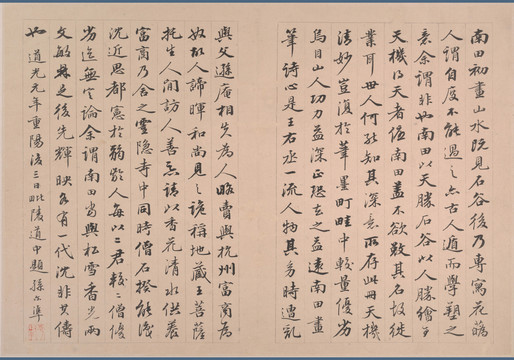 南田初畫山水既見石谷後乃專寫花
人謂自度不能過之亦古人遁而學塑之
意余謂非也南田以天勝石谷以人勝繪事
天機得天者優南田蓋不欲斅其名故徙
業耳世人何能知其深意所存此冊天機
清妙豈復於筆墨町畦中較量優劣
烏目山人功力益深正恐去之益遠南田畫
筆詩心是王右丞一流人物其少時遭亂
與父遜庵相失為人略賣與杭州富商為
奴故人諦暉和尚見之詭稱地藏王菩薩
托生人間訪人善惡請以香花清水供養
富商乃舍之靈隱寺中同時僧石揆能識
沈近思都憲於弱齡人每以二君較二僧優
劣迄無定論余謂南田當與松雪香光兩
文敏之後先輝映各有一代沈非其儔
也 道光元年重陽後三日毗陵道中題 孫爾準